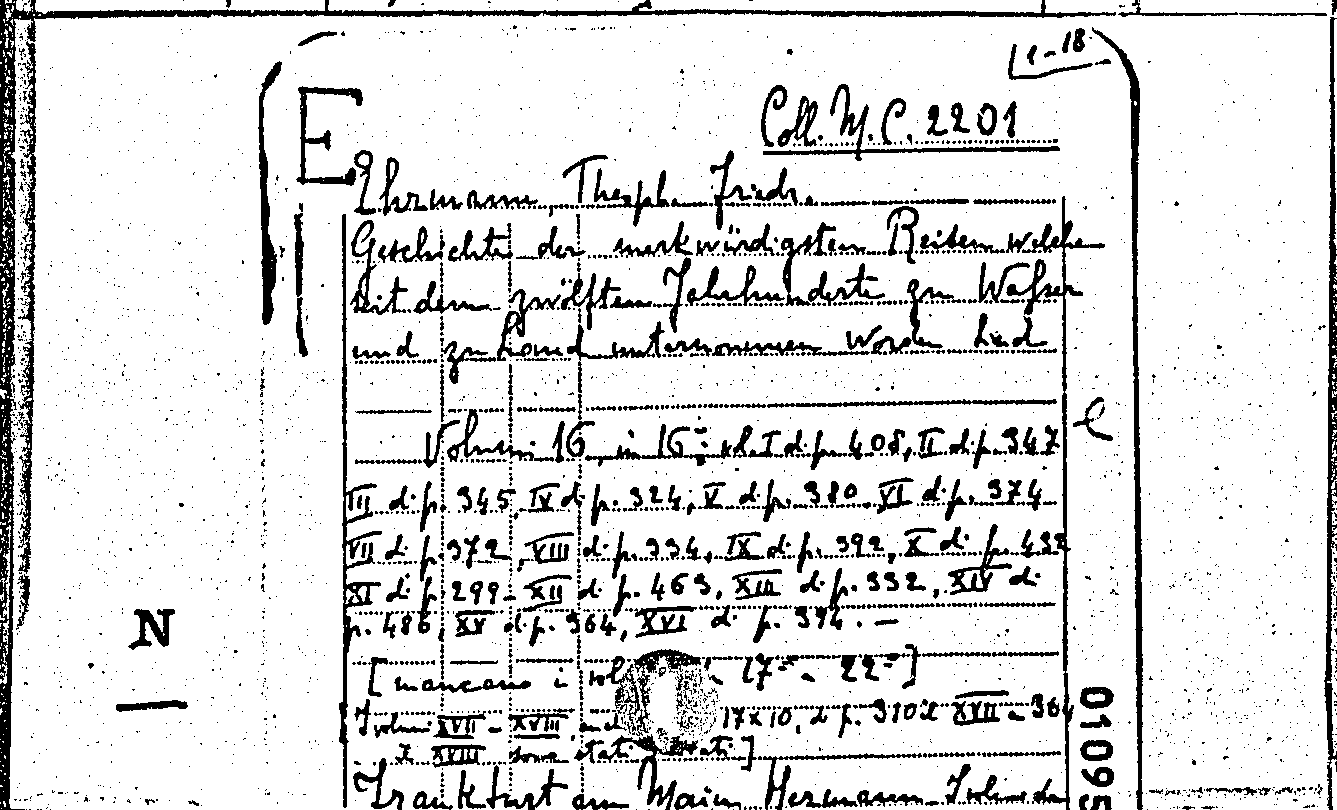 1-18
E
Coll. M. C. 2201
Ehrmann, Theoph. Friedr.
Geschichte der merkwürdigsten Reisen welche
seit dem zwölften Jahrhunderte zu Waßer
und zu Land unternommen worden sind
e
Volumi 16, in 16º: vol. I di p. 408, II di p. 347
III di p. 345, IV di p. 324, V di p. 380, VI di p. 374
VII di p. 372, VIII di p. 334, IX di p. 392, X di p. 432
XI di p. 299 - XII di p. 463, XIII di p. 332, XIV di
p. 486, XV di p. 364, XVI di p. 394. —
[mancano i vol 17º - 22º]
I volumi XVII - XVIII, 17x10, di p. 310 il XVII - 364
il XVIII sono stati]
Frankfurt am Main, Hermann
N
01095